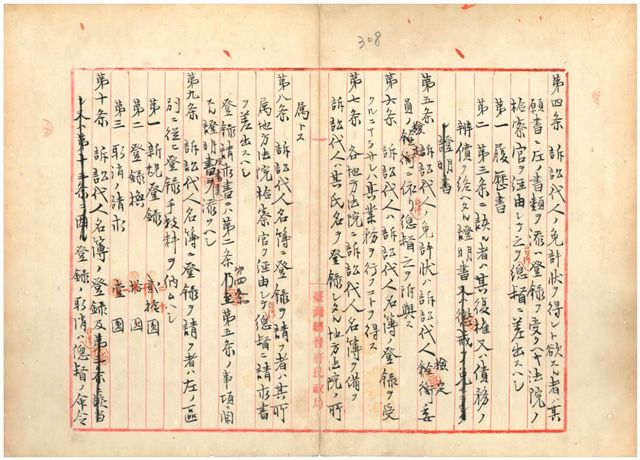 308
第四条 訴訟代人ノ免許状ヲ得ント欲スル者ハ其
願書ニ左ノ書類ヲ添ヘ登録ヲ受クヘキ法院ノ
検察官ヲ経由シテ之ヲ総督ニ差出スヘシ
第一 履歴書
第二 第三条ニ該ル者ハ其復権又ハ債務ノ
弁償ヲ終ヘタル證明書
證明書
第五条 訴訟代人ノ免許状ハ訴訟代人
検定
員ノ
ニ依リ総督之ヲ附與ス
第六条 訴訟代人ハ訴訟代人名簿ニ登録ヲ受
クルニアラサレハ其業務ヲ行フコトヲ得ス
第七条 各地方法院ニ訴訟代人名簿ヲ備ヘ
訴訟代人其氏名ヲ登録シタル地方法院ノ所
属トス
第八条 訴訟代人名簿ニ登録ヲ請フ者ハ其所
属地方法院検察官ヲ経由シテ総督ニ請求書
ヲ差出スヘシ
登録請求書ニハ第二条乃至第五条ノ事項ニ関
第四条
スル證明書ヲ添フヘシ
第九条 訴訟代人名簿ニ登録ヲ請フ者ハ左ノ区
別ニ従ヒ登録手数料ヲ納ムヘシ
第一 新規登録 貳拾圓
第二 登録換 拾圓
第三 取消ノ請求 壹圓
第十条 訴訟代人名簿ノ登録及
登録ノ取消ハ総督ノ命令
臺灣總督府民政局